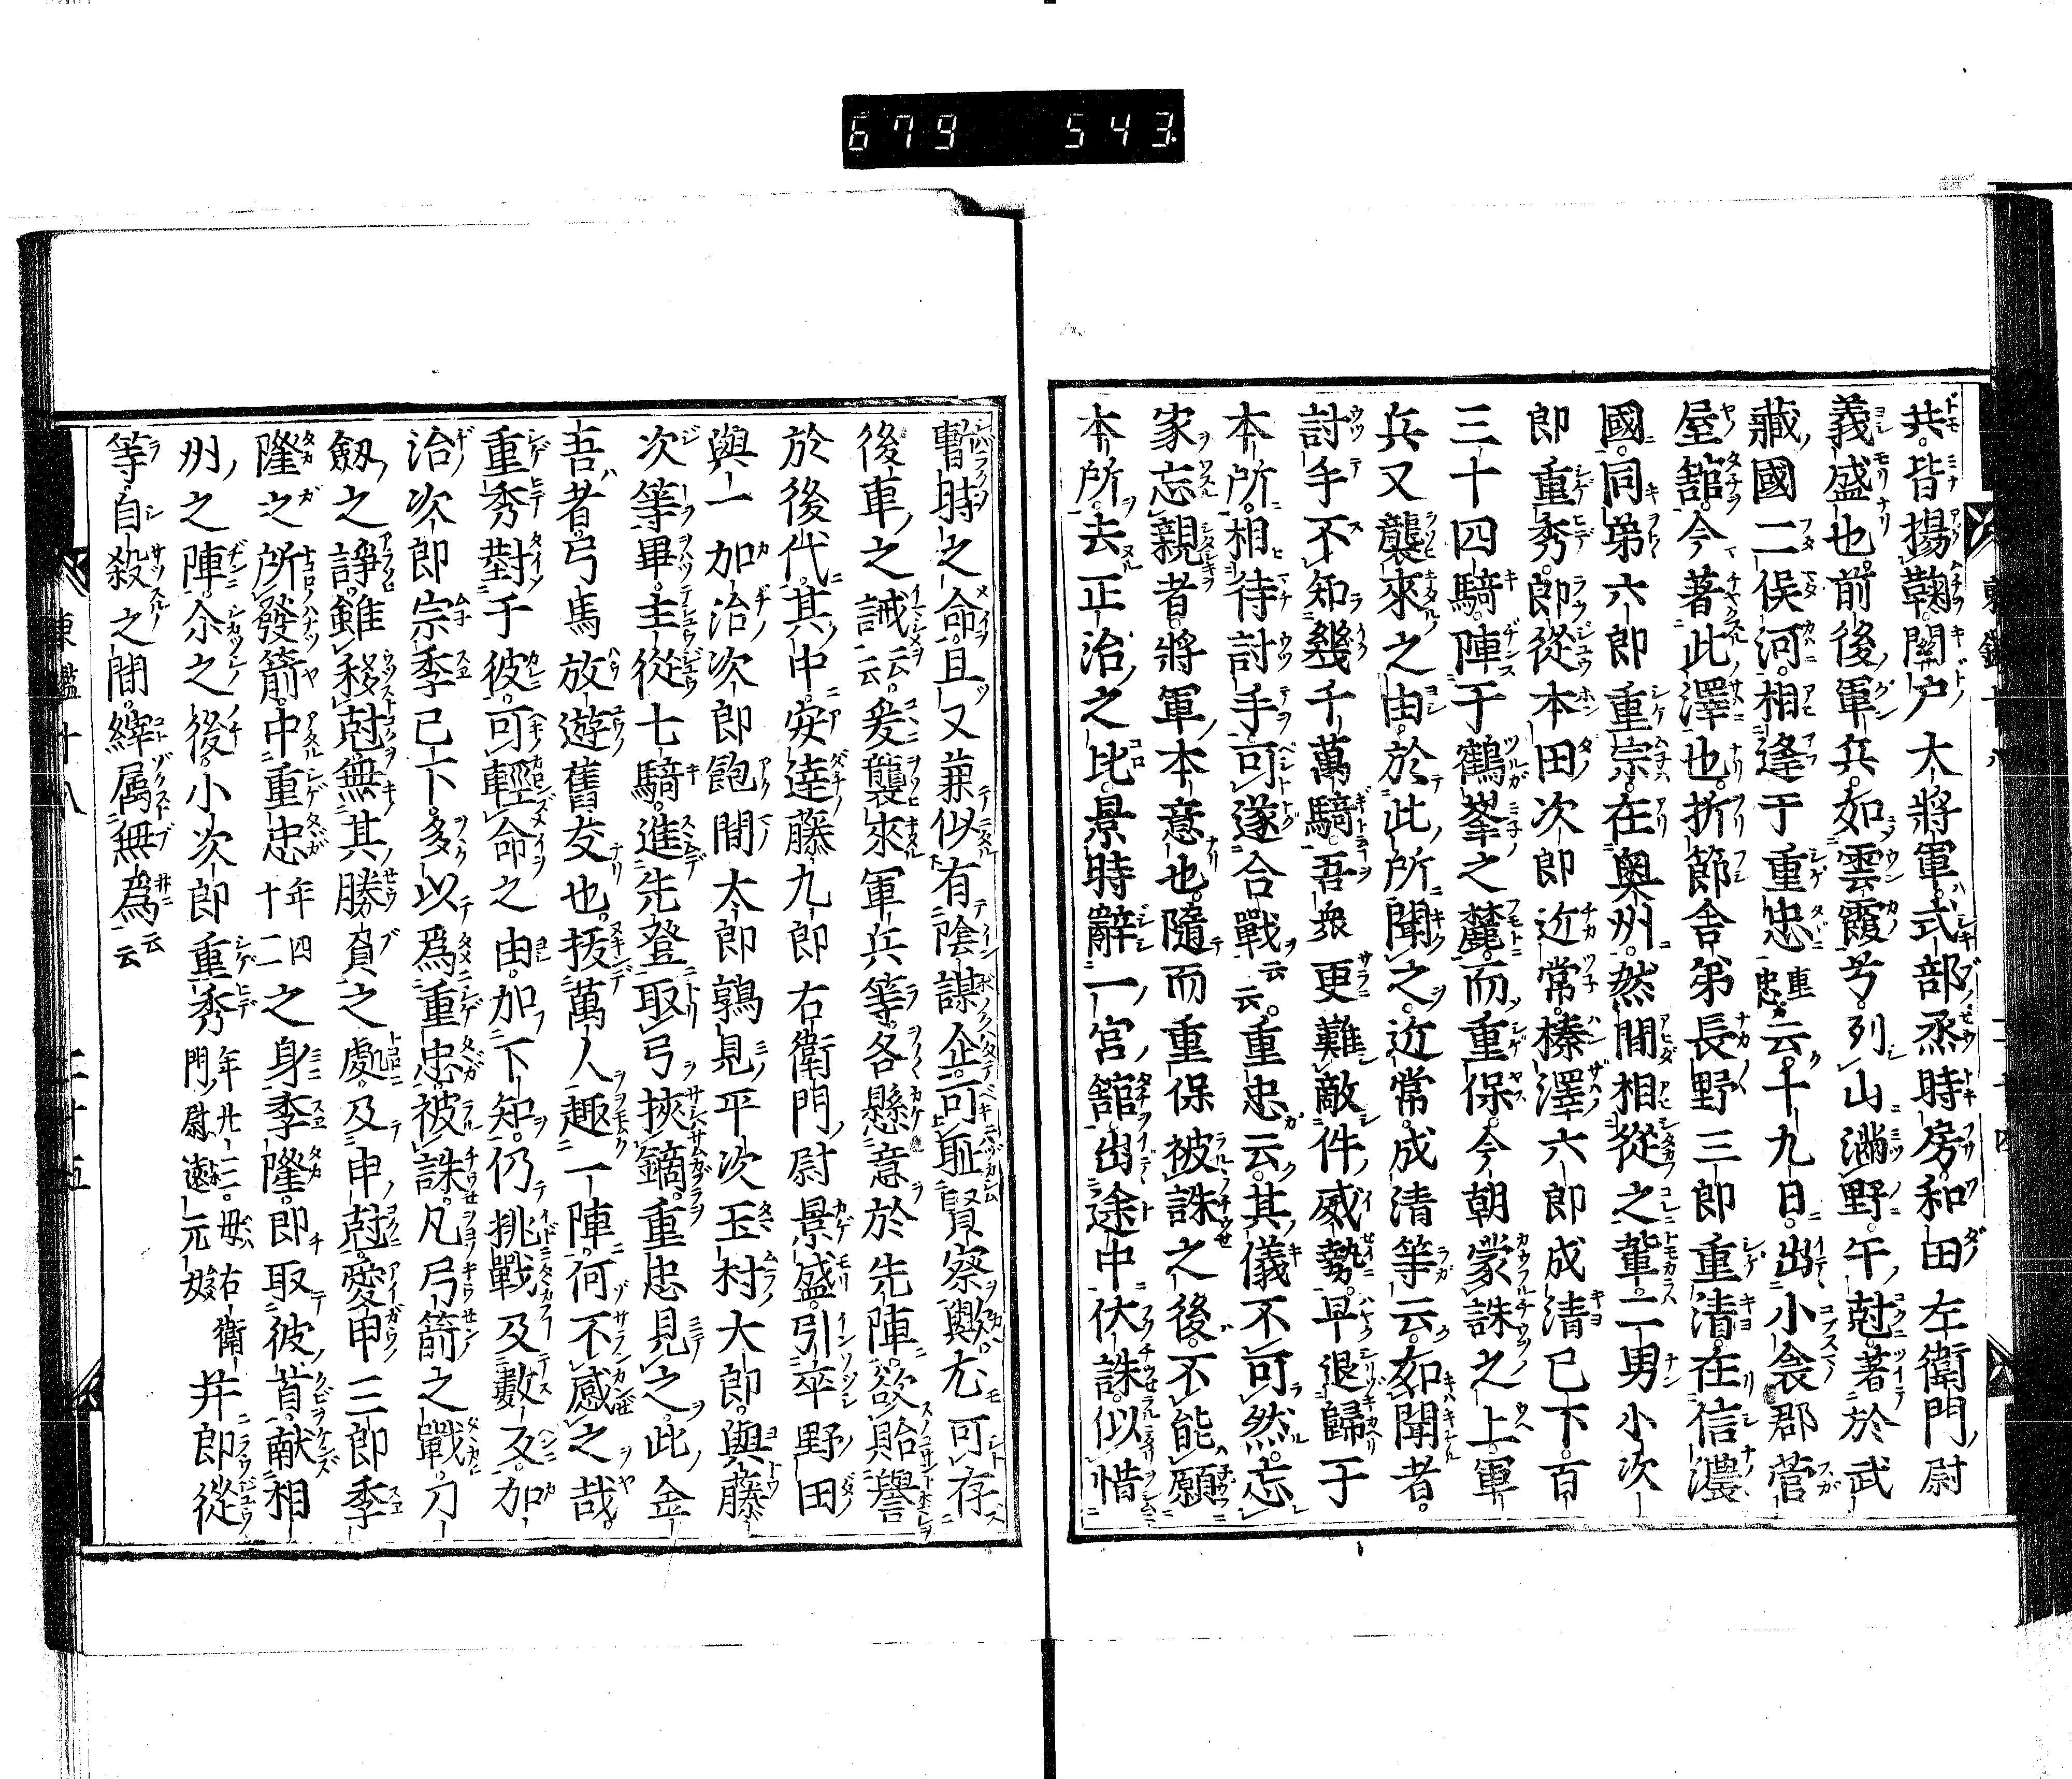 679 543
共。皆揚鞭。關戸大將軍。式部丞時房。和田左衛門尉
義盛也。前後軍兵。如雲霞兮。列山滿野。午尅著於武
藏國二俣河。相逢于重忠。重忠云。十九日。出小衾郡菅
屋舘。今著此澤也。折節舎弟長野三郎重清在信濃
國。同弟六郎重宗在奥州。然間相從之輩。二男小次
郎重秀。郎從本田次郎近常。榛澤六郎成清已下。百
三十四騎。陣于鶴峯之麓。而重保今朝蒙誅之上。軍
兵又襲來之由。於此所聞之。近常。成清等云。如聞者。
討手不知幾千萬騎。吾衆更難敵件威勢。早退歸于
本所。相待討手。可遂合戰云云。重忠云。其儀不可然。忘
家忘親者。將軍本意也。隨而重保被誅之後。不能願
本所。去正治之比。景時辭一宮舘。出途中伏誅。似惜
暫時之命。且又兼似有陰謀企。可耻賢察歟。尤可存
後車之誡云云。爰襲來軍兵等。各懸意於先陣。欲貽譽
於後代。其中。安逹藤九郎右衛門尉景盛。引卒野田
與一加治次郎飽間太郎鶉見平次玉村大郎。與藤
次等畢。主從七騎。進先登。取弓挾鏑。重忠見之。此金
吾者。弓馬放遊舊友也。抜萬人趣一陣。何不感之哉。
重秀對于彼。可輕命之由。加下知。仍挑戰及數反。加
治次郎宗季已下。多以爲重忠。被誅。凡弓箭之戰。刀
劔之諍。雖移尅。無其勝負之處。及申尅。愛甲三郎季
隆之所發箭。中重忠年四十二之身。季隆即取彼首。献相
州之陣。尒之後。小次郎重秀年廿三。母右衛門尉遠元女并郎從
等自殺之間。縡属無爲云云
東鑑十八
二十五